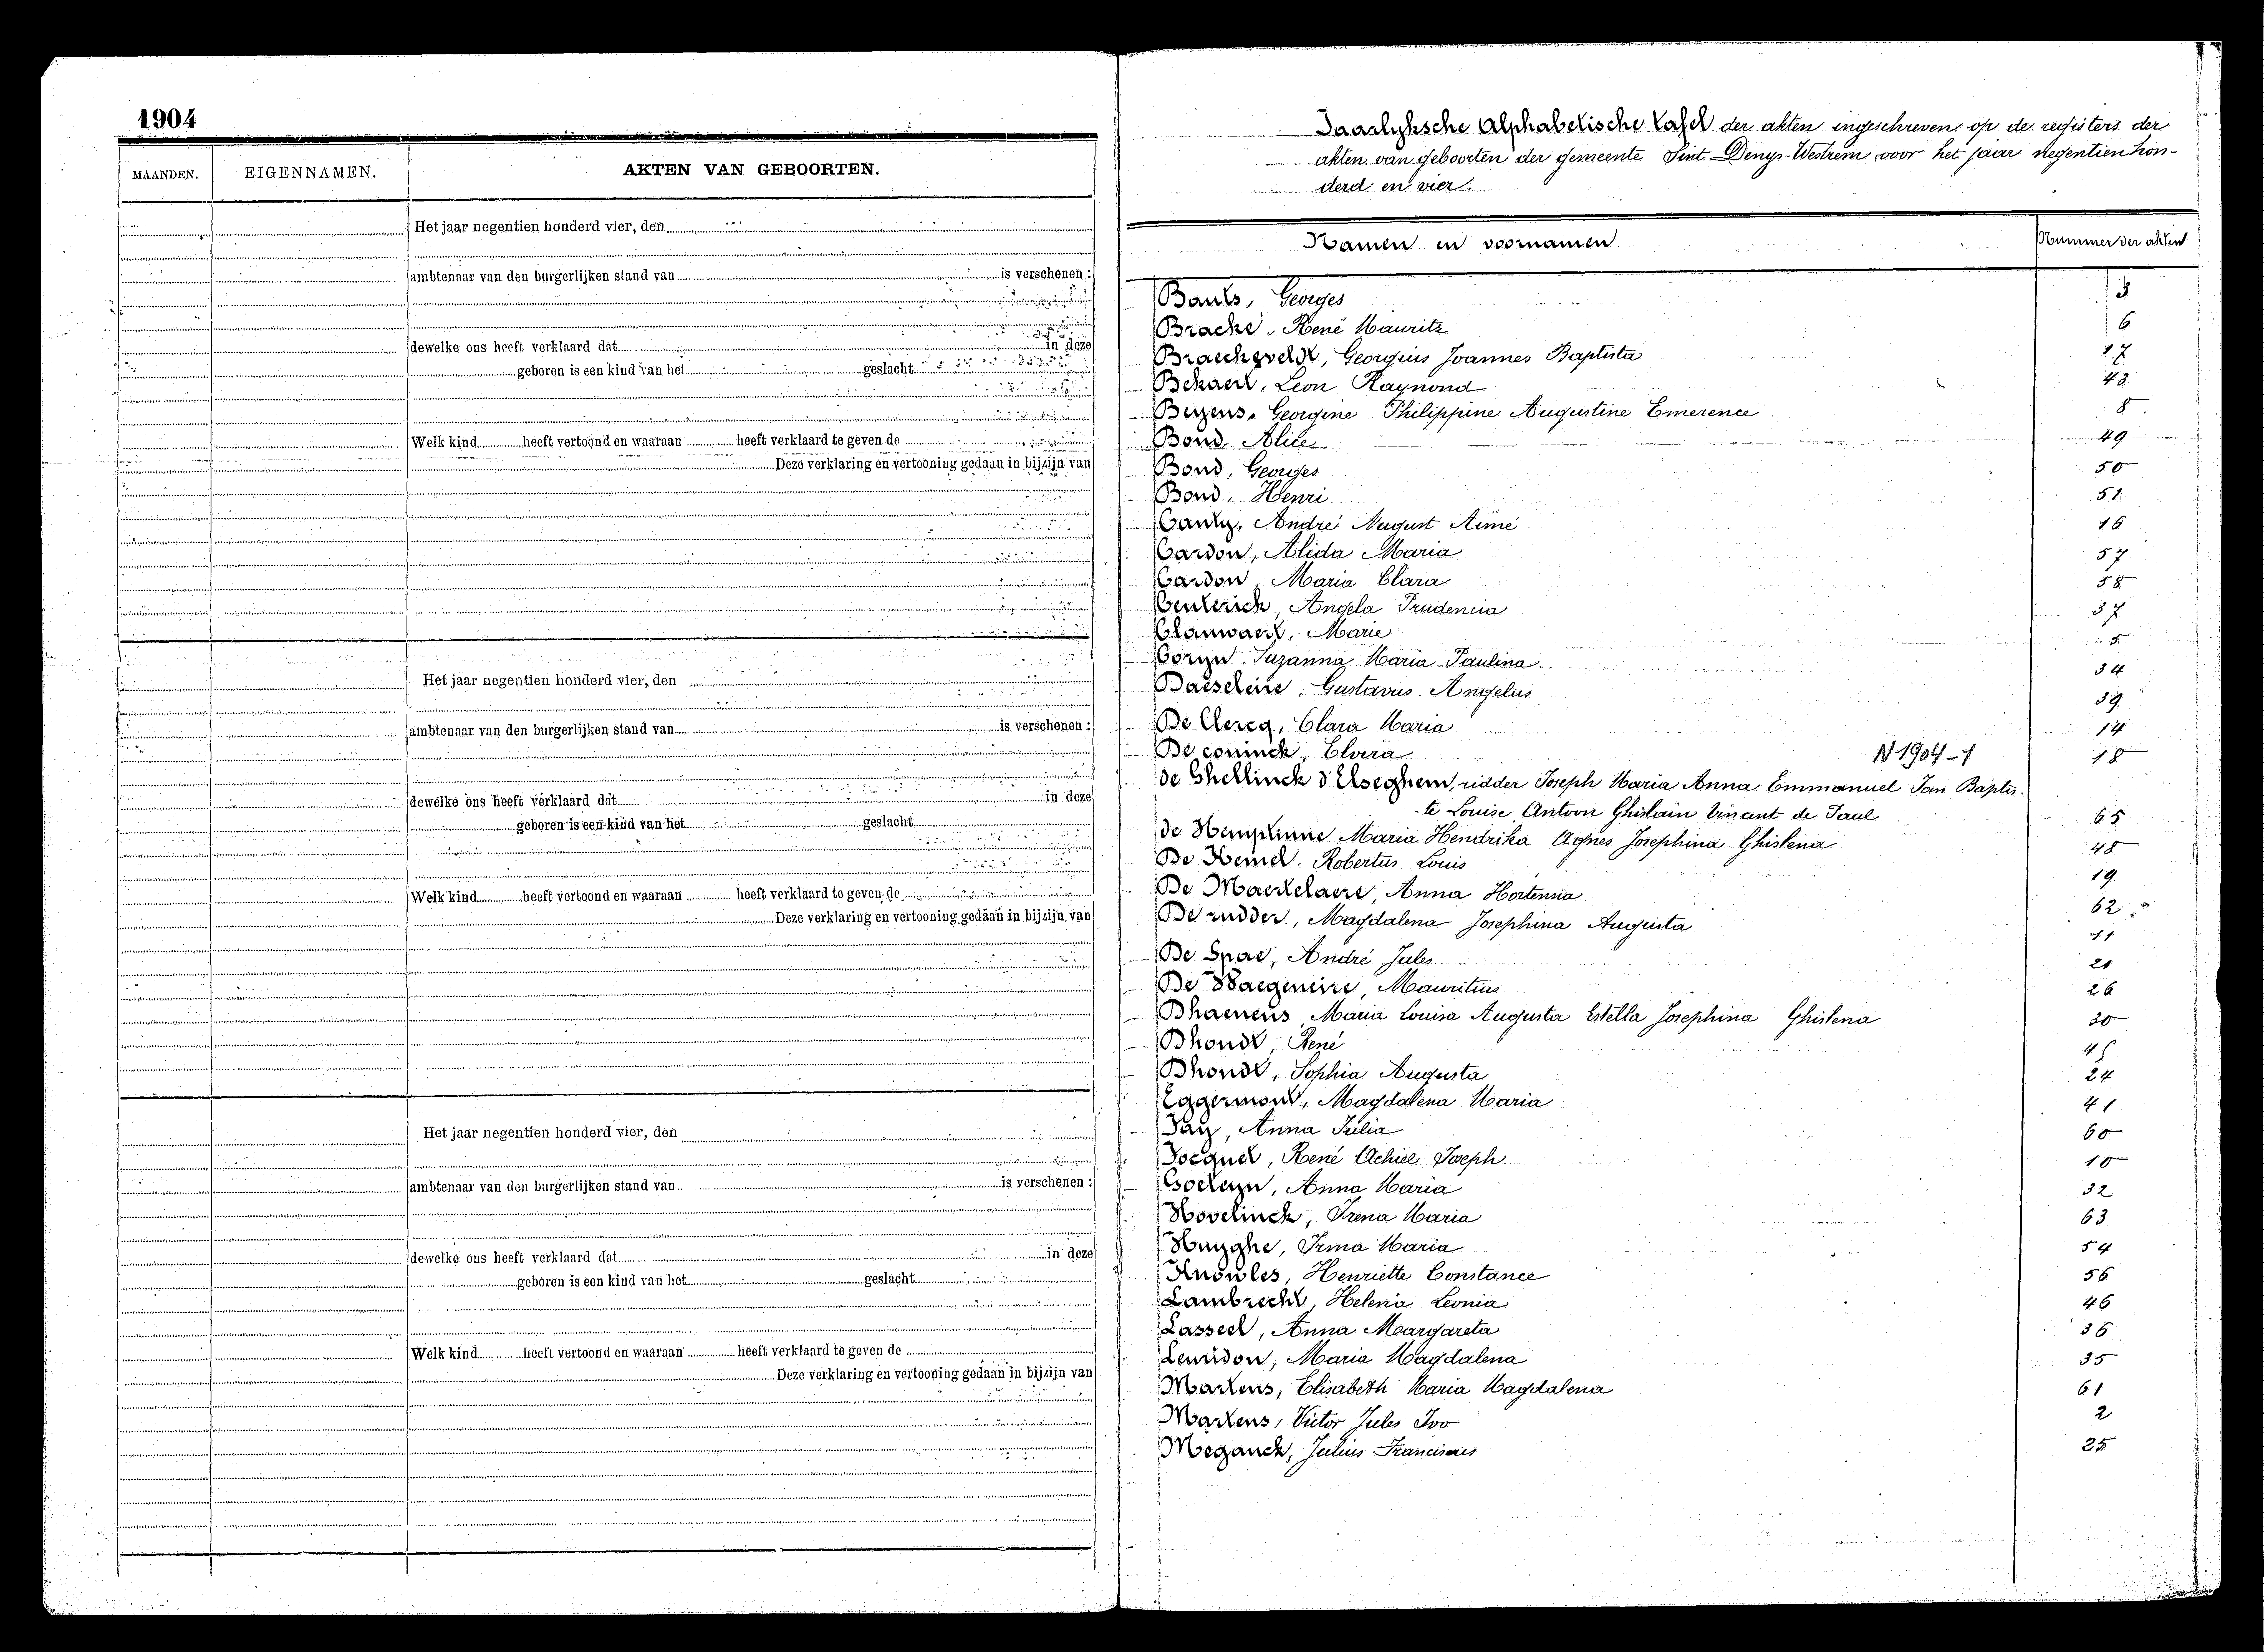 1904
MAANDEN. EIGENNAMEN. AKTEN VAN GEBOORTEN.
Het jaar negentien honderd vier, den
ambtenaar van den burgerlijken stand van is verschenen :
dewelke ons heeft verklaard dat in deze
geboren is een kind van het geslacht
Welk kind heeft vertoond en waaraan heeft verklaard te geven de
Deze verklaring en vertooning gedaan in bijzijn van
Het jaar negentien honderd vier, den
ambtenaar van den burgerlijken stand van is verschenen :
dewelke ons heeft verklaard dat in deze
geboren is een kind van het geslacht
Welk kind heeft vertoond en waaraan heeft verklaard te geven de
Deze verklaring en vertooning gedaan in bijzijn van
Het jaar negentien honderd vier, den
ambtenaar van den burgerlijken stand van is verschenen :
dewelke ons heeft verklaard dat in deze
geboren is een kind van het geslacht
Welk kind heeft vertoond en waaraan heeft verklaard te geven de
Deze verklaring en vertooning gedaan in bijzijn van
Jaarlyksche Alphabetische Tafel der akten ingeschreven op de registers der
akten van geboorten der gemeente Sint Denys-Westrem voor het jaar negentien hon-
derd en vier.
Namen en voornamen Nummer der akten
Bauts, Georges 3
Bracke, René Maurits 6
Georgius Joannes Baptista 17
Bekaert, Leon Raymond 43
Beyens, Georgine Philippine Augustine Emerence 8
Bond, Alice 49
Bond, Georges 50
Bond, Henri 51
Cauly, André August Aimé 16
Cardon, Alida Maria 57
Cardon, Maria Clara 58
Centerick, Angela Prudencia 37
Clauwaert, Marie 5
Coryn, Suzanna Maria Paulina 34
Gustavus Angelus 39
De Clercq, Clara Maria 14
De coninck, Elvira N 1904-1 18
de Ghellinck d'Elseghem, ridder Joseph Maria Anna Emmanuel Jan Baptis-
te Louise Antoon Ghislain Vincent de Paul 65
de Hemptinne Maria Hendrika Agnes Josephina Ghislena 48
De Keimel, Robertus Louis 19
De Maertelaere, Anna Hortensia 62
De rudder, Magdalena Josephina Augusta 11
De Spae, André Jules 21
De Waegeneire, Mauritius 26
Dhaenens, Maria Louisa Augusta Estella Josephina Ghislena 30
Dhondt, René 45
Dhondt, Sophia Augusta 24
Eggermont, Magdalena Maria 41
Fay, Anna Julia 60
Focquet, René Achiel Joseph 10
Goeteyn, Anna Maria 32
Hovelinck, Irena Maria 63
Huyghe, Irma Maria 54
Knowles, Henriette Constance 56
Lambrecht, Helena Leonia 46
Lasseel, Anna Margareta 36
Lemidon, Maria Magdalena 35
Martens, Elisabeth Maria Magdalena 61
Martens, Victor Jules Ivo 2
Meganck, Julius Franciscus 25